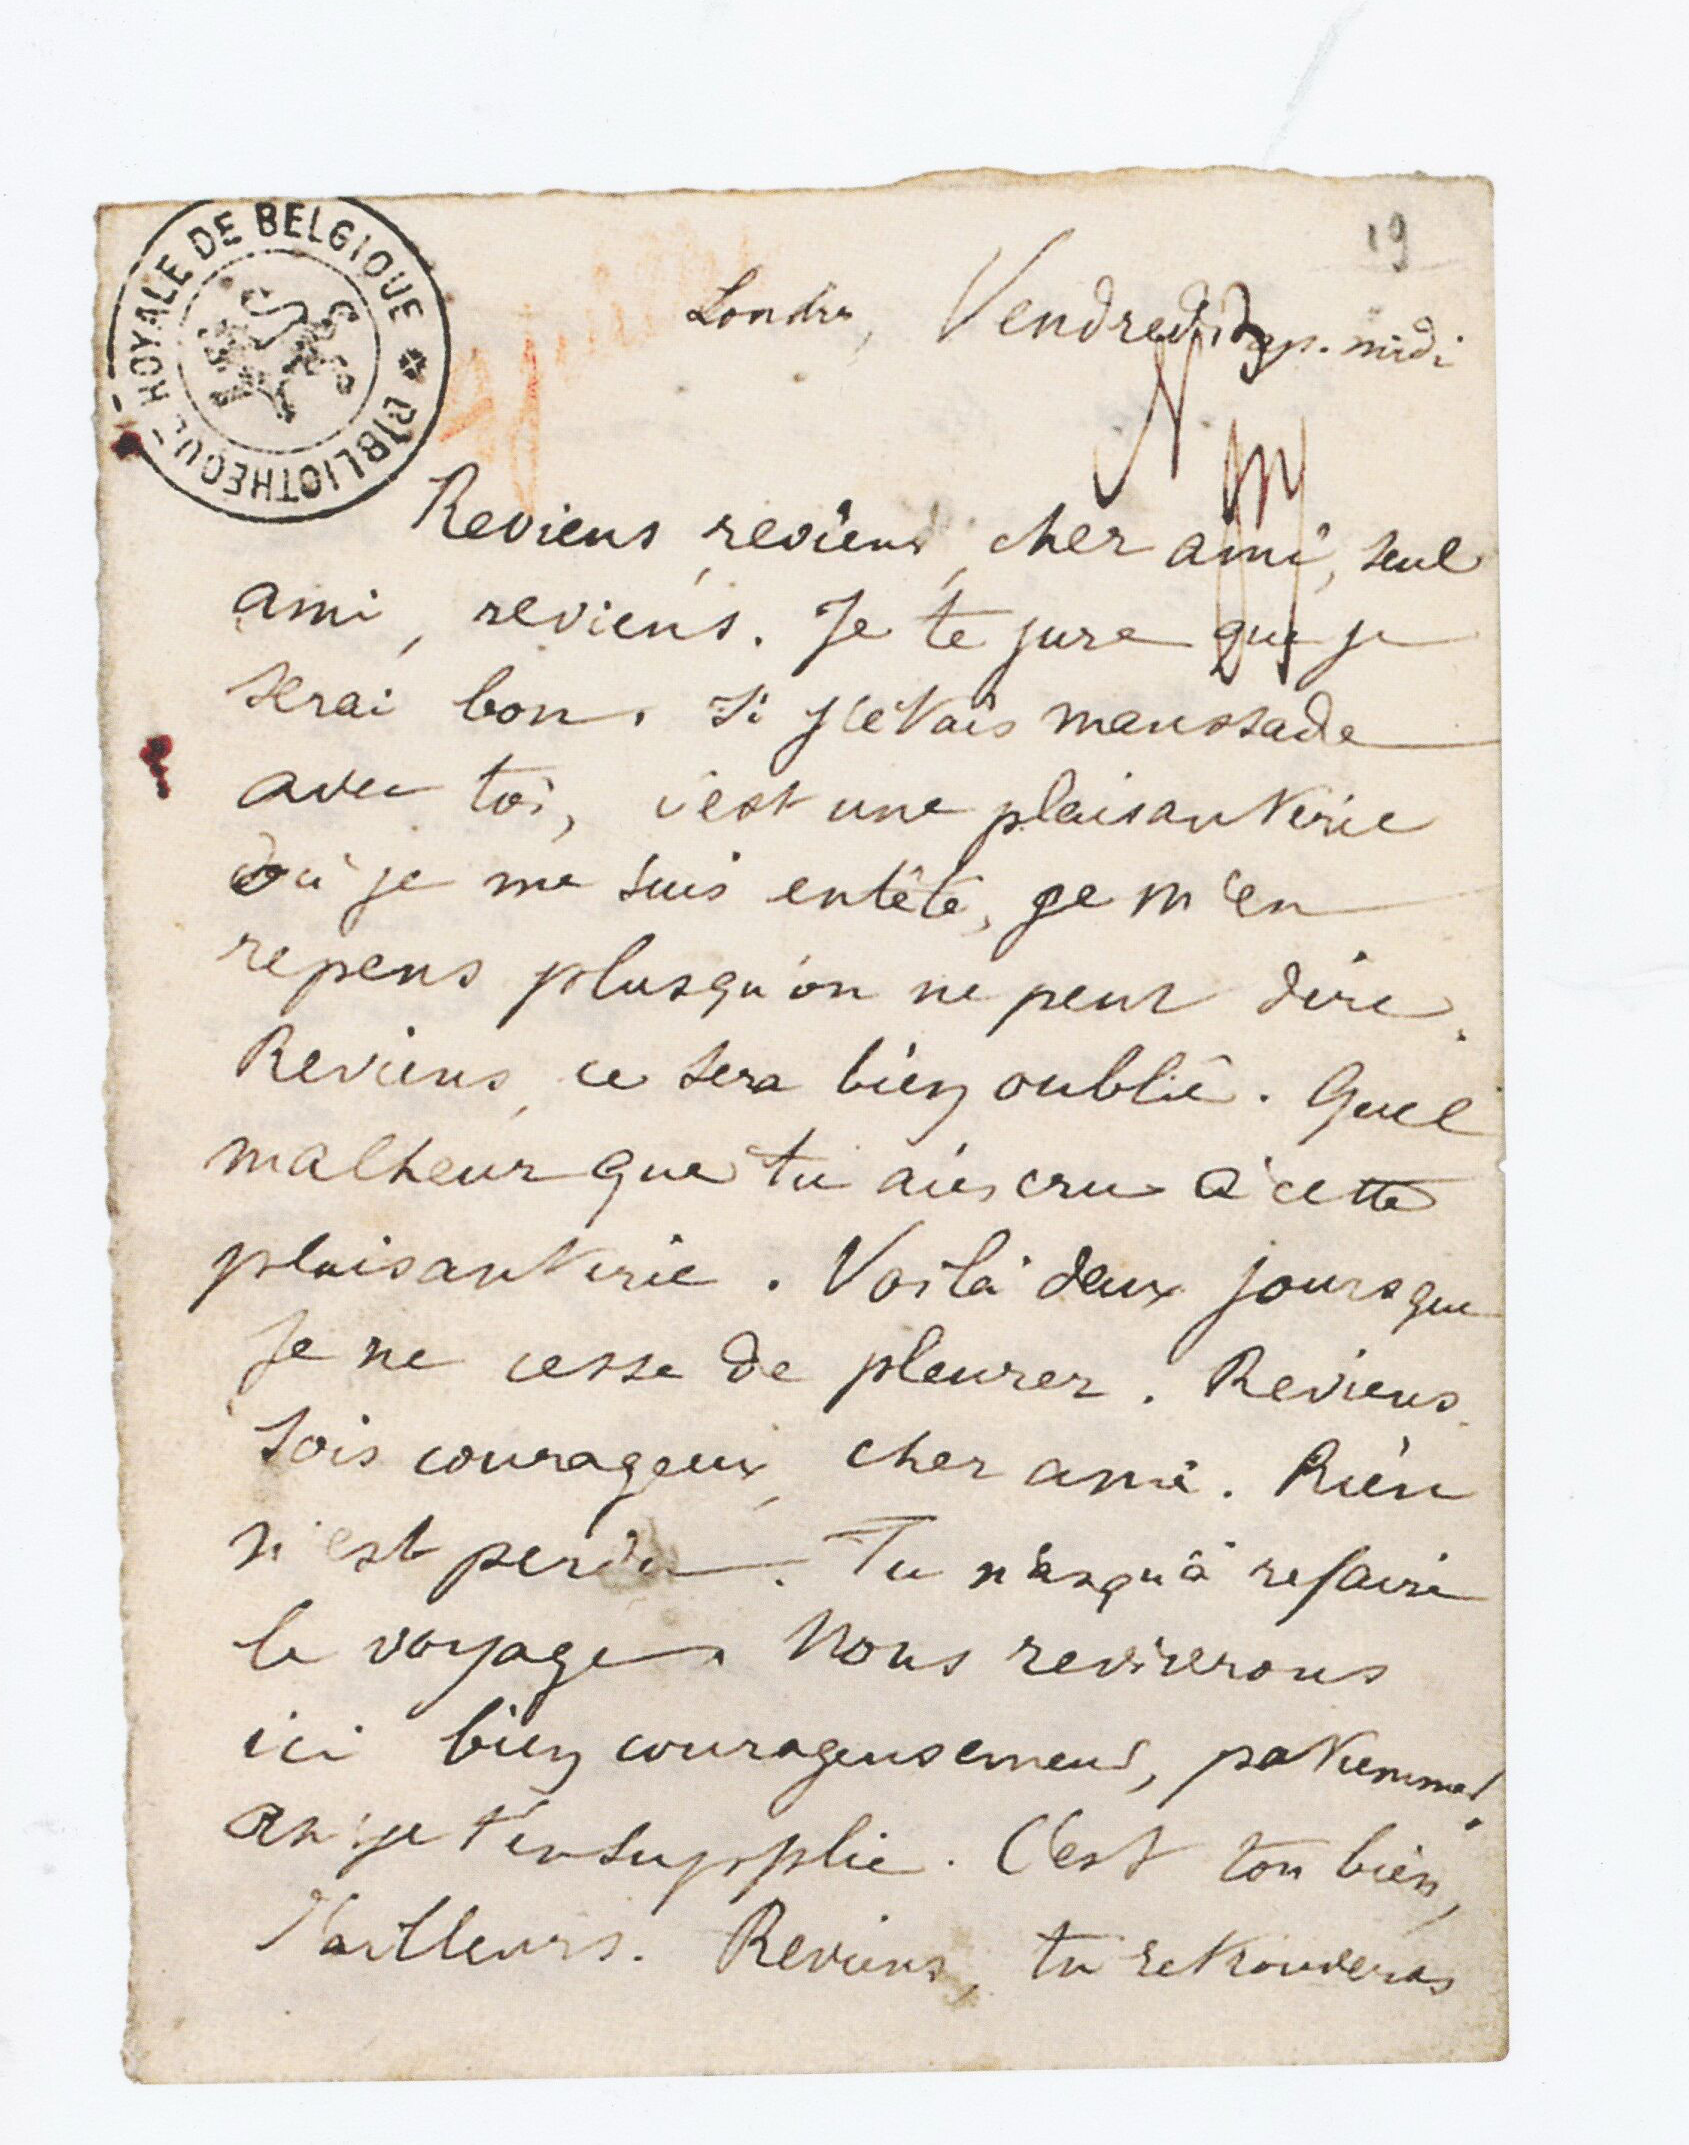 BIBLIOTHÈQUE ROYALE DE BELGIQUE
19
Londres, Vendredi ap. midi
Reviens, reviens, cher ami, seul
ami, reviens. Je te jure que je
serai bon. Si j'étais maussade
avec toi, c'est une plaisanterie
où je me suis entêté, je m'en
repens plus qu'on ne peut dire.
Reviens, ce sera bien oublié. Quel
malheur que tu aies cru à cette
plaisanterie. Voilà deux jours que
je ne cesse de pleurer. Reviens.
Sois courageux, cher ami. Rien
n'est perdu. Tu n'as qu'à refaire
le voyage. Nous revivrons
ici bien courageusement, patiemment.
Ah je t'en supplie. C'est ton bien,
d'ailleurs. Reviens, tu retrouveras